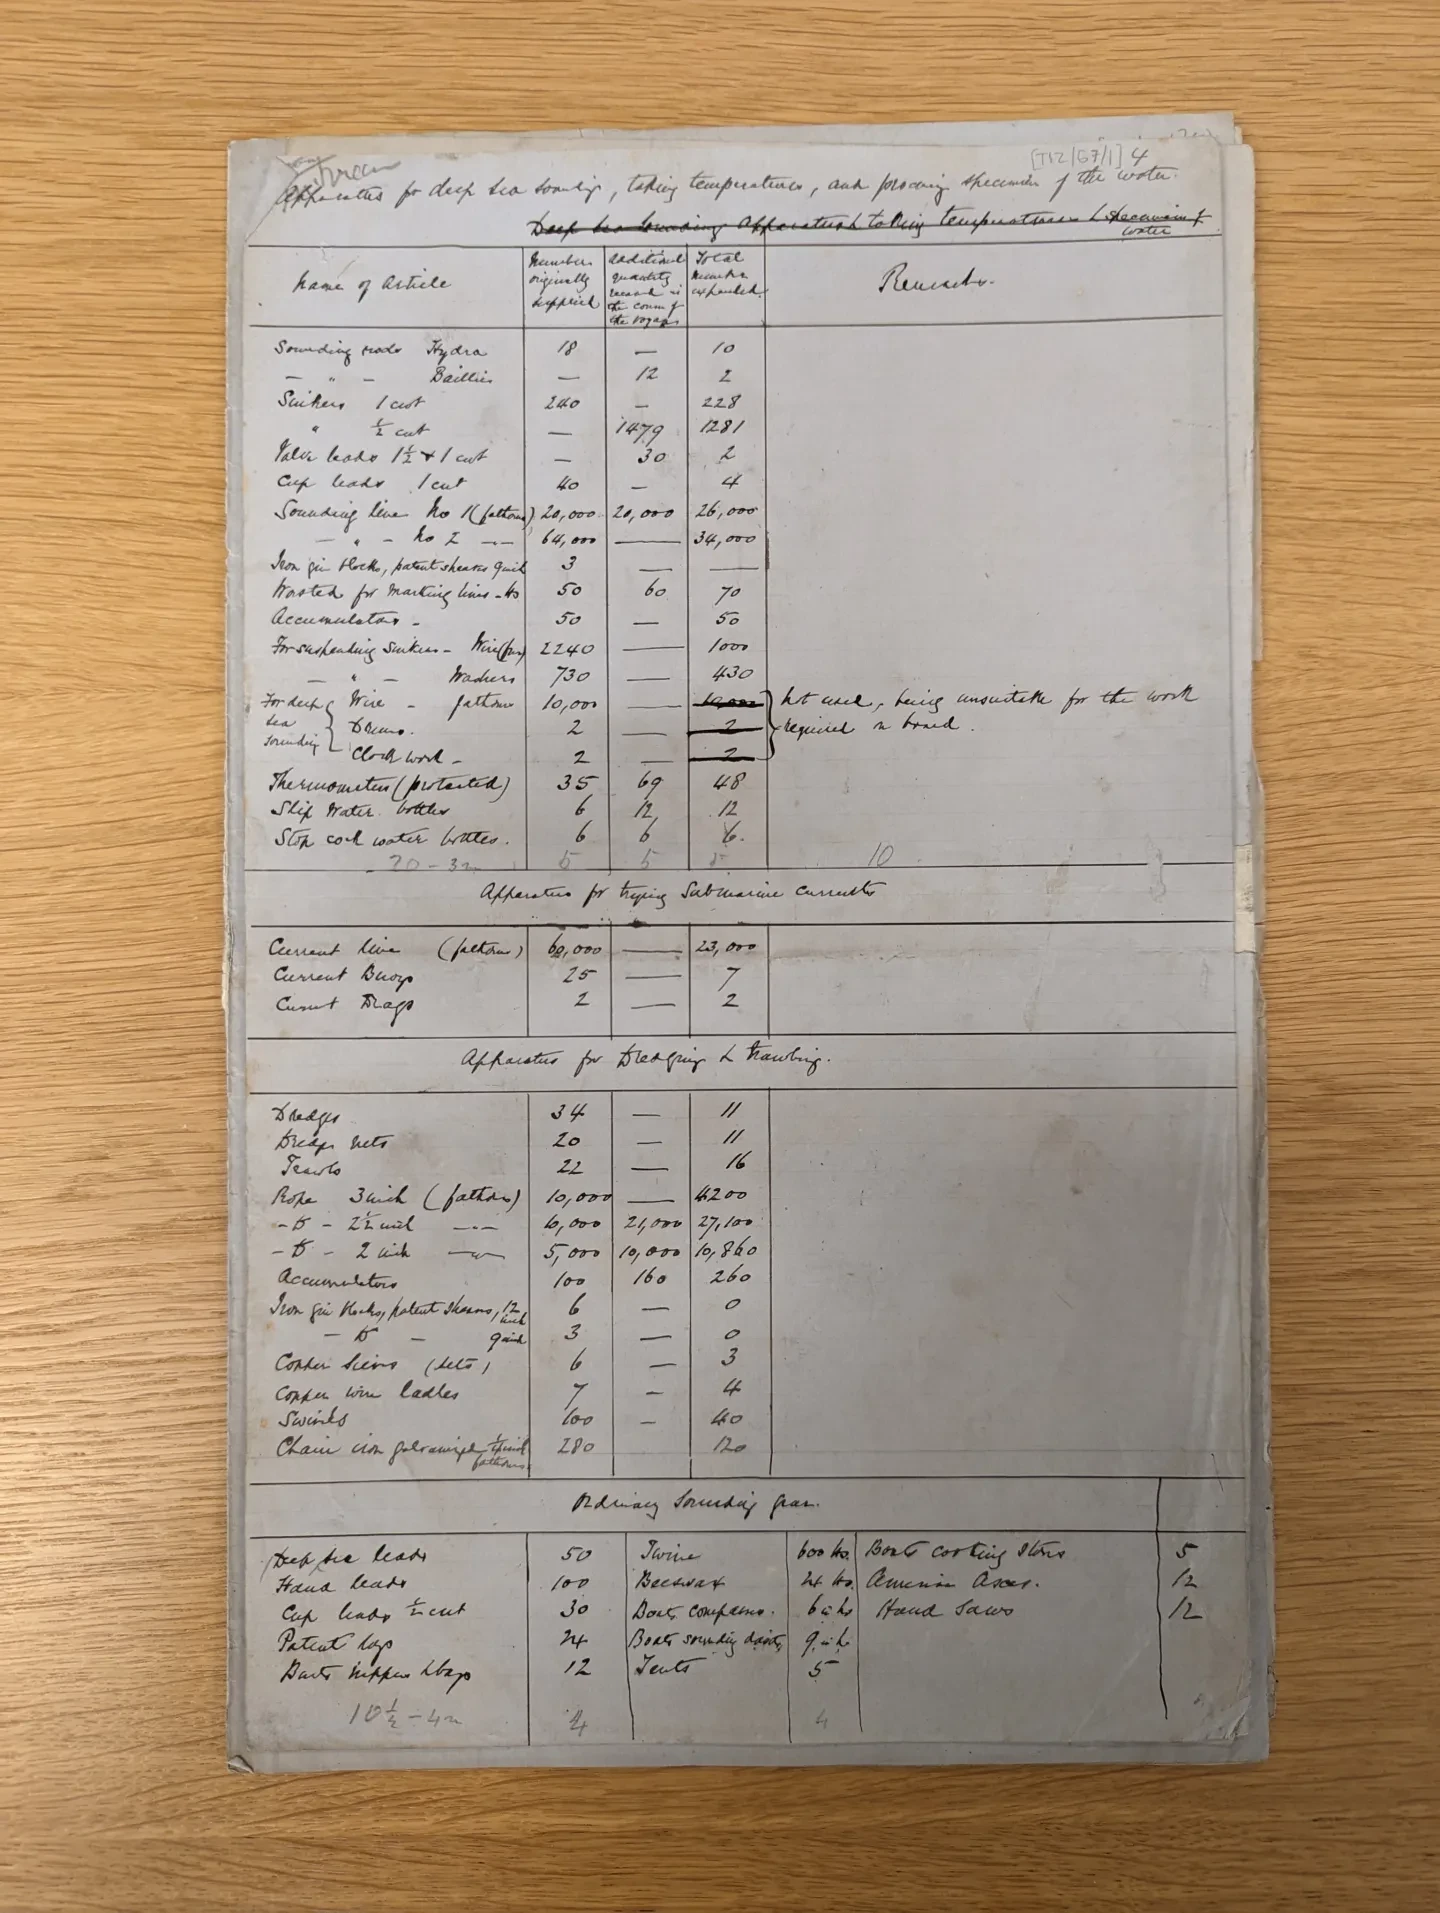 [T12/G7/1] 4
Apparatus for deep sea sounding, taking temperatures, and procuring specimens of the water.
Deep sea sounding Apparatus & taking temperatures & specimens of water
Name of Article
Numbers originally supplied
Additional quantity received in the course of the voyage
Total number expended
Remarks.
Sounding rods Hydra 18 — 10
— " — Baillies — 12 2
Sinkers 1 cwt 240 — 228
" ½ cwt — 1479 1281
Valve leads 1½ & 1 cwt — 30 2
Cup leads 1 cwt 40 — 4
Sounding line No 1 (fathoms) 20,000 20,000 26,000
— " — No 2 — 64,000 — 34,000
Iron gin blocks, patent sheaves 9 inch 3 — —
Worsted for marking lines - lbs 50 60 70
Accumulators - 50 — 50
For suspending sinkers - Wire 2240 — 1000
— " — Washers 730 — 430
For deep sea sounding { Wire - fathoms 10,000 — 10,000 } Not used, being unsuitable for the work
Drums. 2 — 2 required on board.
Clock work - 2 — 2
Thermometers (protected) 35 69 48
Slip Water bottles 6 12 12
Stop cock water bottles. 6 6 6.
20 - 3 5 5 5 10
Apparatus for trying Submarine currents
Current line (fathoms) 60,000 — 23,000
Current Buoys 25 — 7
Current Drags 2 — 2
Apparatus for Dredging & trawling.
Dredges 34 — 11
Dredge nets 20 — 11
Trawls 22 — 16
Rope 3 inch (fathoms) 10,000 — 4200
- Do - 2½ inch — 6,000 21,000 27,100
- Do - 2 inch — 5,000 10,000 10,860
Accumulators 100 160 260
Iron gin blocks, patent sheaves, 12 inch 6 — 0
— Do — 9 inch 3 — 0
Copper sieves (sets) 6 — 3
Copper wire ladles 7 — 4
Swivels 100 — 40
Chain iron galvanized inch fathoms. 280 120
Ordinary sounding gear.
Deep sea leads 50 Twine 600 lbs. Boats cooking stoves 5
Hand leads 100 Beeswax 24 lbs. American Axes. 12
Cup leads ½ cwt 30 Boats compasses. 6 in No Hand Saws 12
Patent logs 24 Boats sounding davits 9 in No
Boats nippers & bags 12 Tents 5
10½ - 4 4 4